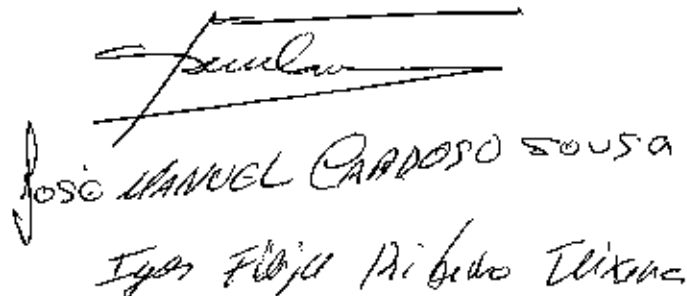 José MANUEL CARDOSO SOUSA
Igor Filipe Ribeiro Teixeira